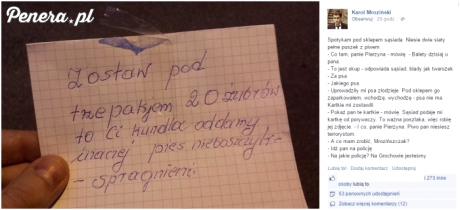 Penera.pl
Zostaw pod
trzepakiem 20 żubrów
to Ci kundla oddamy
inaczej pies nieboszczyk -
- spragnieni.
Karol Mroziński
Obserwuj
Spotykam pod sklepem sąsiada. Niesie dwie siaty
pełne puszek z piwem
- Co tam, panie Pierzyna - mówię. - Balety dzisiaj u
pana
- To jest okup - odpowiada sąsiad, blady jak twarożek.
- Za psa
- Jakiego psa
- Uprowadziły mi psa złodzieje. Pod sklepem go
zaparkowałem, wchodzę, wychodzę - psa nie ma.
Kartkie mi zostawili
- Pokaż pan te kartkie - mówię. Sąsiad podaje mi
kartkie od porywaczy. To ważna poszlaka, więc robię
jej zdjęcie. - I co, panie Pierzyna. Piwo pan niesiesz
terrorystom.
- A co mam zrobić, Mrozińszczak?
- Idź pan na policję
- Na jakie policję? Na Grochowie jesteśmy
Lubię to! · Dodaj komentarz · Udostępnij
1 273 inne
osoby lubią to
53 ponownych udostępnień
Zobacz więcej komentarzy (12)